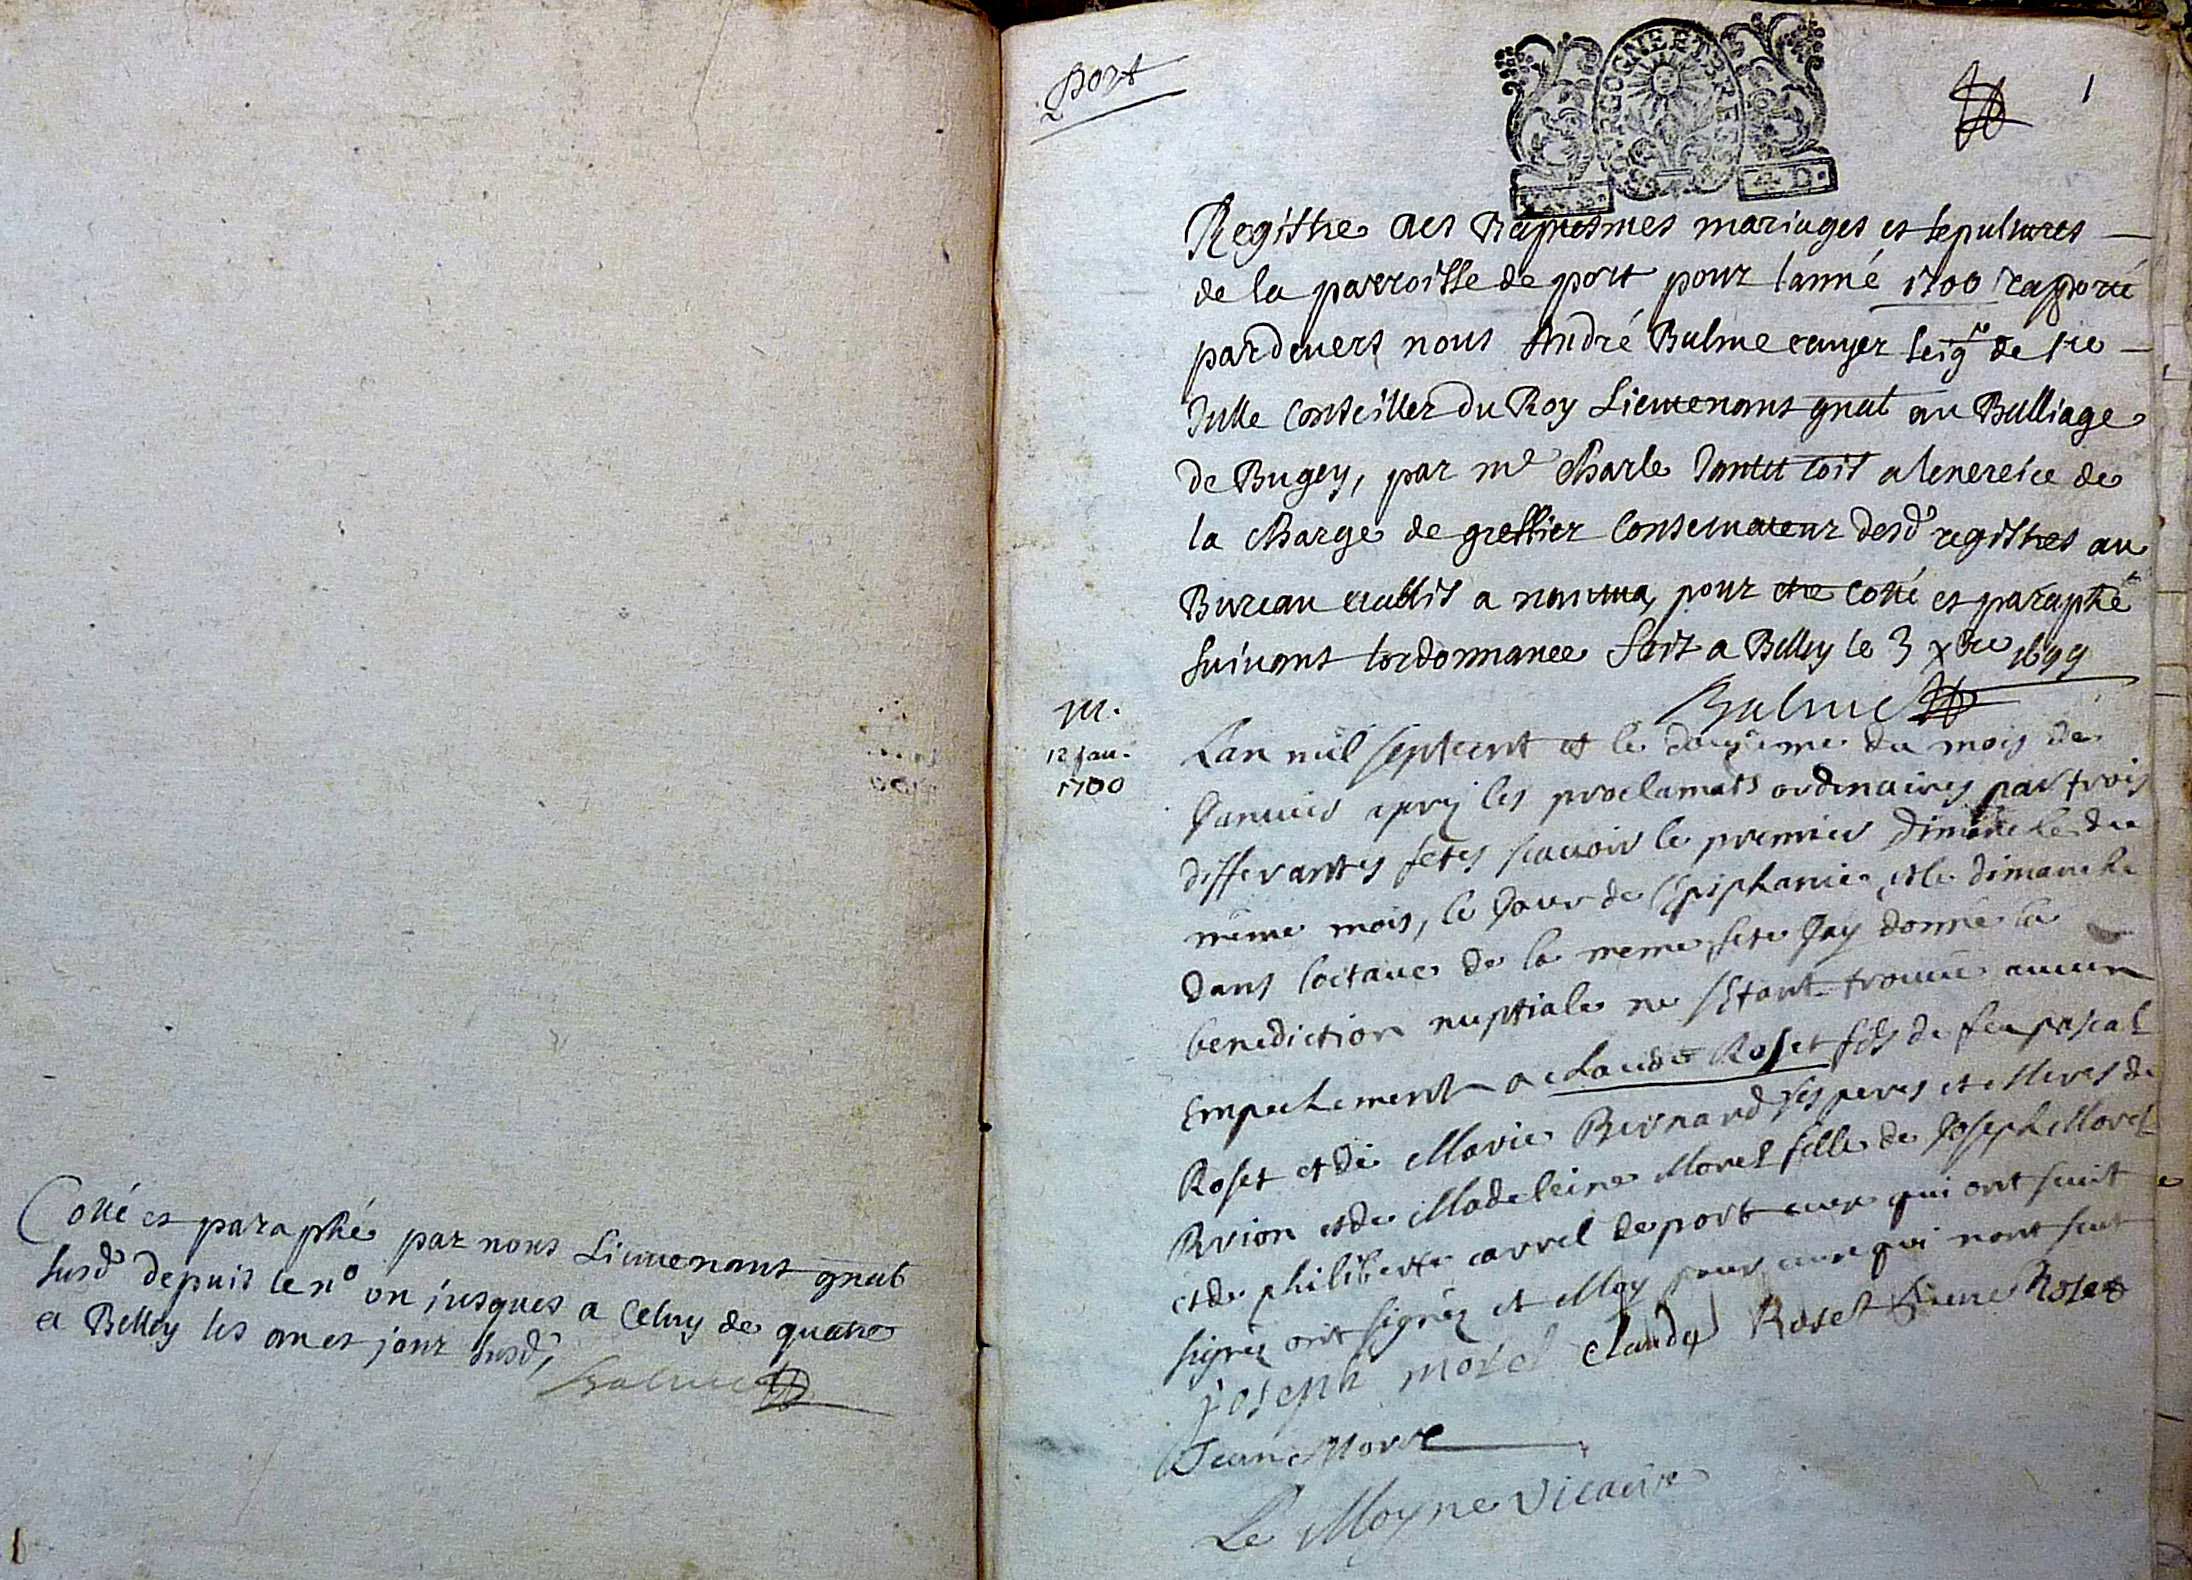 Cotté et paraphé par nous Lieutenant gnal
susd. depuis le n° un jusques a celuy de quatre
a Belley les an et jour susd.
Balme
Port
BOURGOGNE ET BRESSE
1
Registre des Baptesmes mariages et sepultures
de la parroisse de port pour lanné 1700 raporté
pardevers nous André Balme ecuyer seigr de
Conseiller du Roy Lieutenant gnal au Balliage
de Bugey, par me Charle commis a lexercice de
la Charge de greffier Conservateur desd. registres au
Bureau etablis a nantua, pour etre cotté et paraphé
suivant lordonnance fait a Belley le 3 xbre 1699
Balme
M.
12 Jan.
1700
Lan mil septcent et le douzieme du mois de
Janvier apres les proclamats ordinaires par trois
differantes fetes scavoir le premier Dimanche du
même mois, le Jour de l'Epiphanie, et le dimanche
dans loctave de la meme fete Jay donné la
benediction nuptiale ne sétant trouvé aucun
Empechement a claude Roset fils de feu pascal
Roset et de Marie Bernard ses peres et Meres de
Brion et de Madeleine Morel fille de Joseph Morel
et de philiberte carrel de port ceux qui ont sceut
signéz ont signéz et Moy pour ceux qui nont sceut
joseph morel claude Roset Roset
Jean Morel
Le Moyne Vicaire